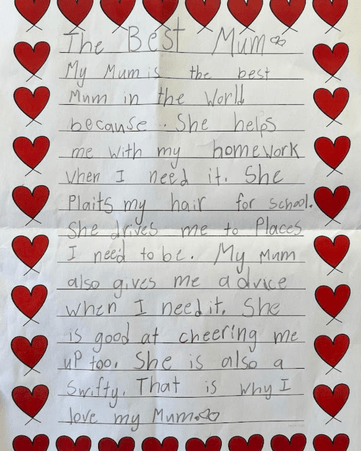 The Best Mum
My Mum is the best
Mum in the World
because. She helps
me with my homework
when I need it. She
Plaits my hair for school.
She drives me to Places
I need to be. My Mum
also gives me advice
when I need it. She
is good at cheering me
up too. She is also a
Swifty. That is why I
love my Mum.